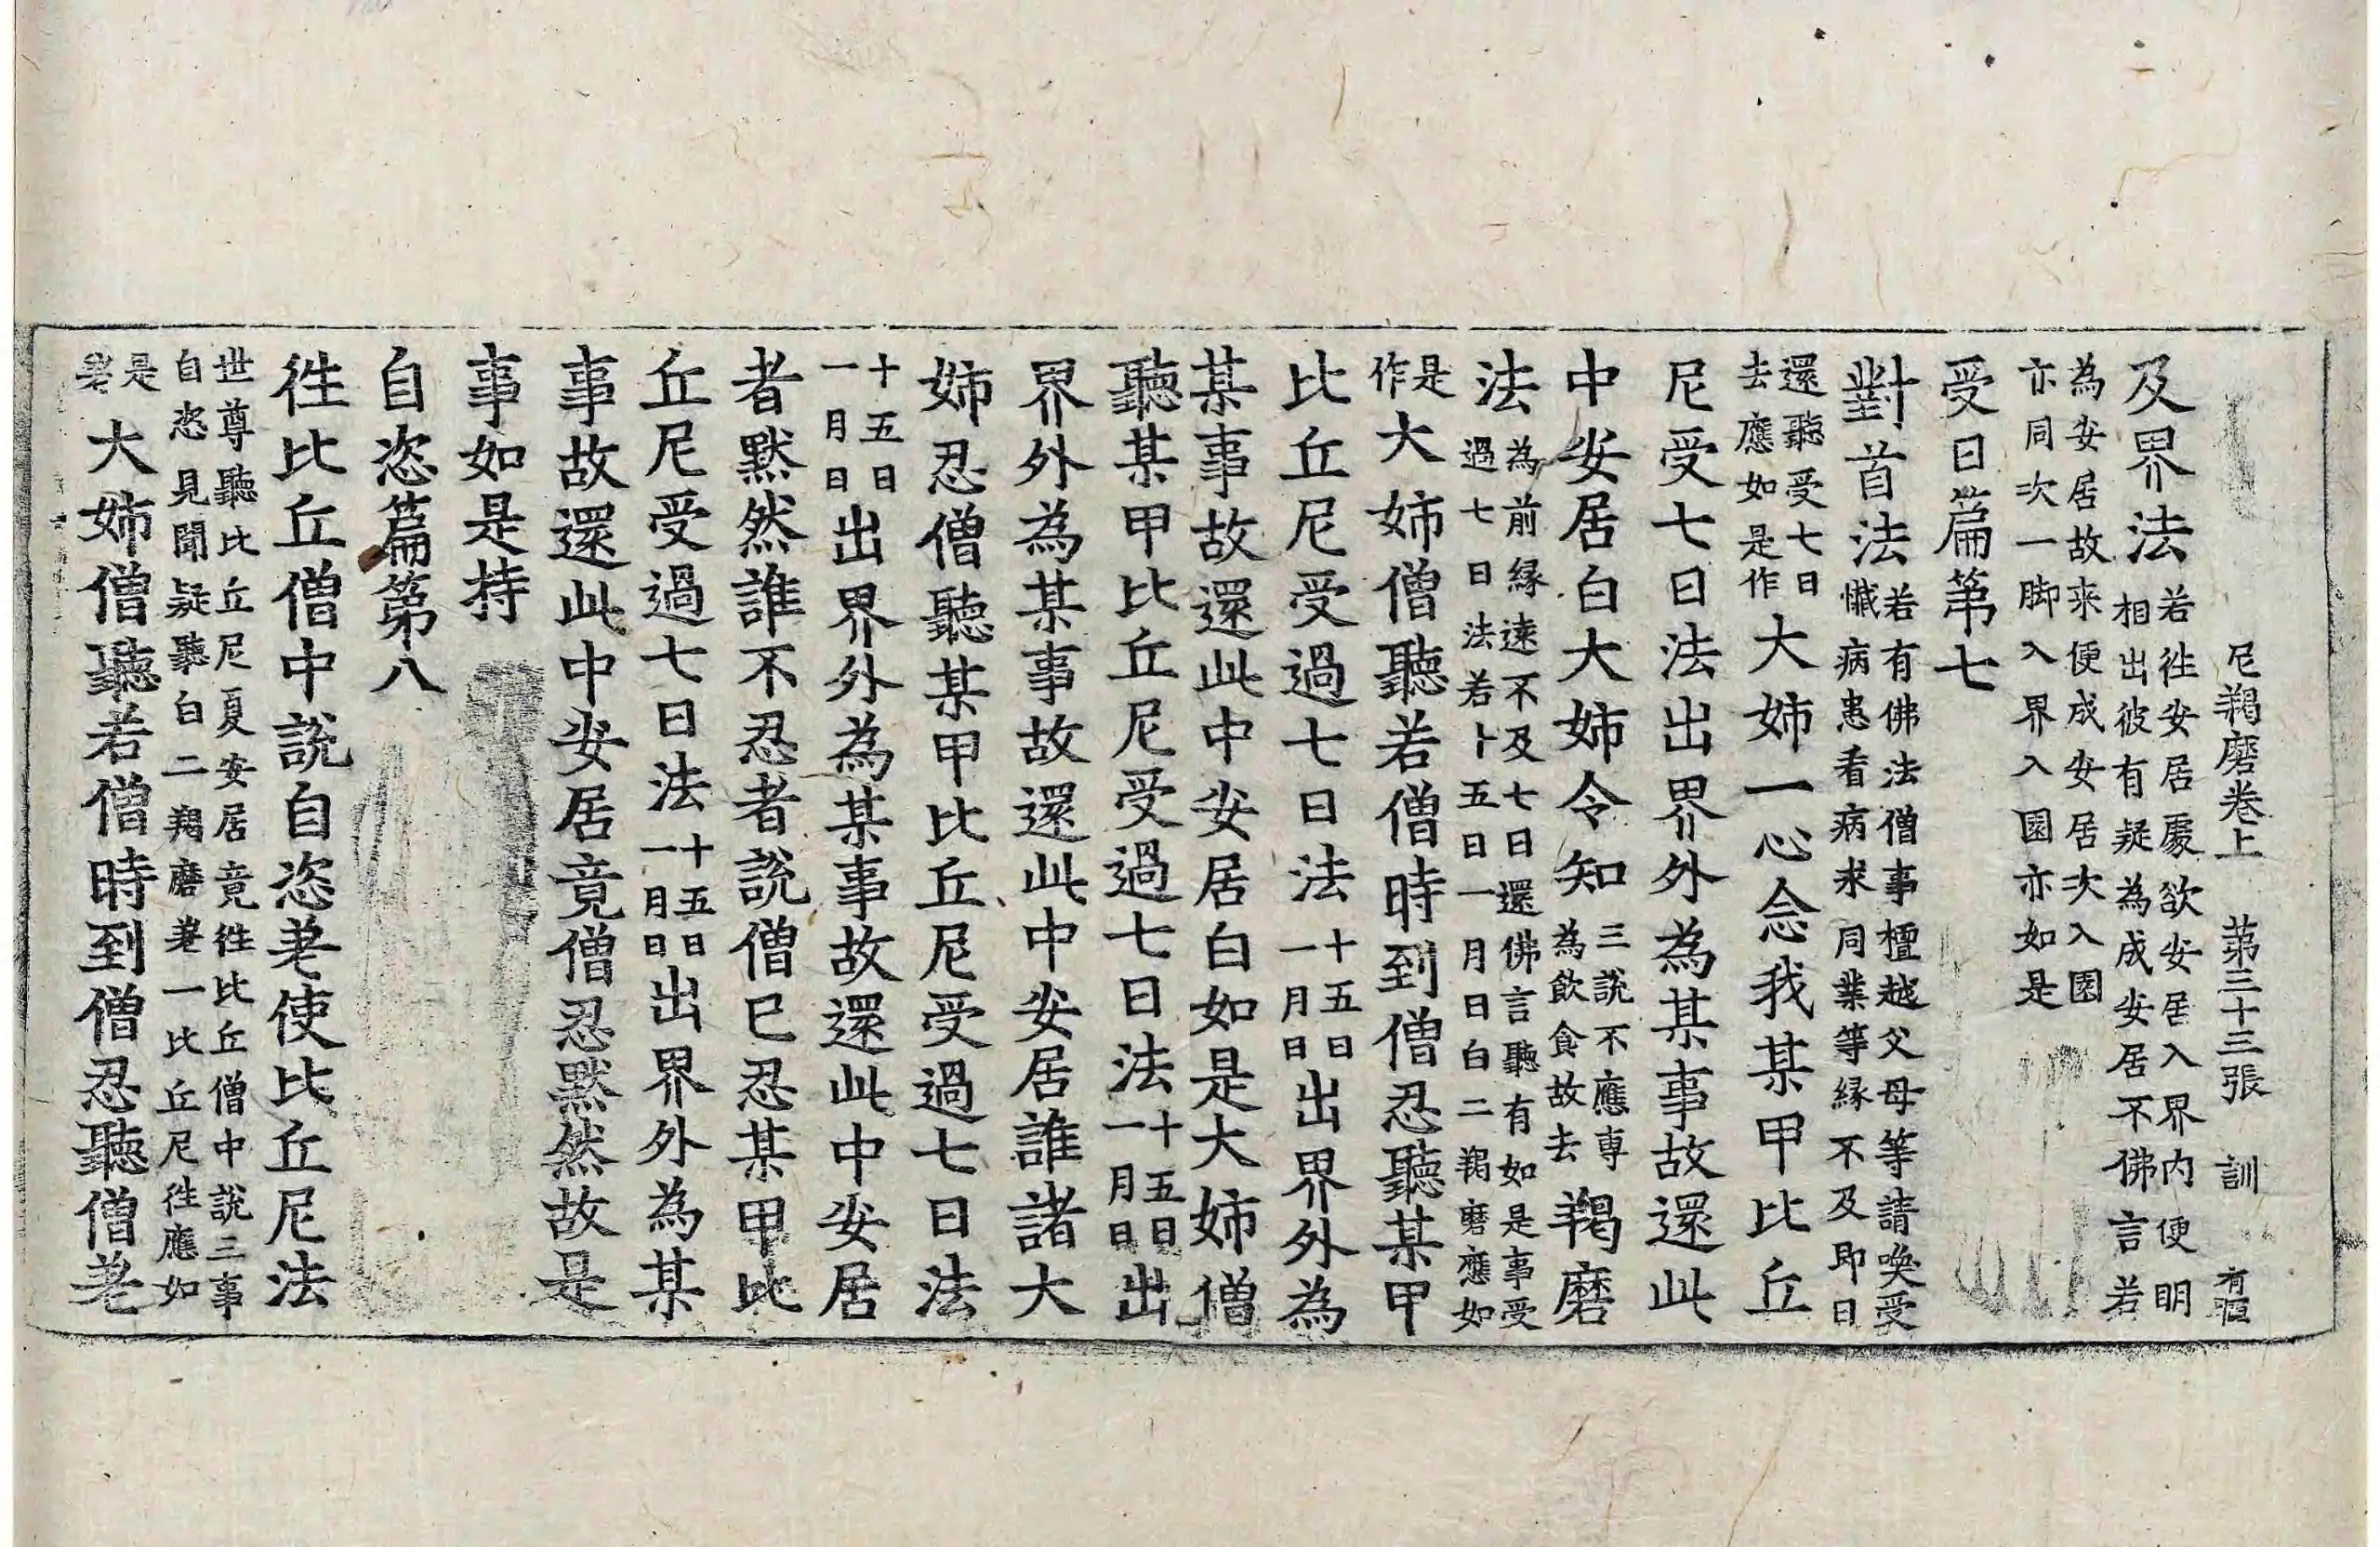 尼羯磨卷上 第三十三張 訓 有恒
及界法 若往安居處欲安居入界內便明
相出彼有疑為成安居不佛言若
為安居故来便成安居次入園
亦同次一脚入界入園亦如是
受日篇第七
對首法 若有佛法僧事檀越父母等請喚受
懺病患看病求同業等緣不及即日
還聽受七日
去應如是作 大姉一心念我某甲比丘
尼受七日法出界外為某事故還此
中安居白大姉令知 三說不應專
為飲食故去 羯磨
法 為前縁遠不及七日還佛言聽有如是事受
過七日法若十五日一月日白二羯磨應如
是
作 大姉僧聽若僧時到僧忍聽某甲
比丘尼受過七日法 十五日
一月日 出界外為
某事故還此中安居白如是大姉僧
聽某甲比丘尼受過七日法 十五日
一月日 出
界外為某事故還此中安居誰諸大
姉忍僧聽某甲比丘尼受過七日法
十五日
一月日 出界外為某事故還此中安居
者默然誰不忍者說僧已忍某甲比
丘尼受過七日法 十五日
一月日 出界外為某
事故還此中安居竟僧忍默然故是
事如是持
自恣篇第八
往比丘僧中說自恣差使比丘尼法
世尊聽比丘尼夏安居竟往比丘僧中說三事
自恣見聞疑聽白二羯磨差一比丘尼往應如
是
差 大姉僧聽若僧時到僧忍聽僧差